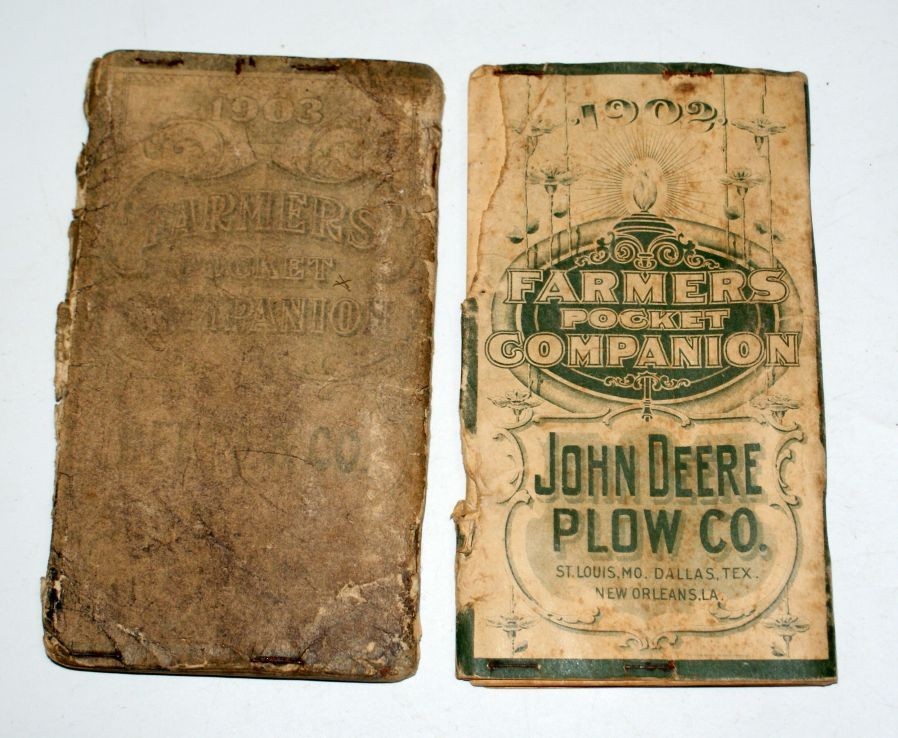 1903
FARMERS'
POCKET
COMPANION
CO.
1902
FARMERS
POCKET
COMPANION
JOHN DEERE
PLOW CO.
ST. LOUIS, MO. DALLAS, TEX.
NEW ORLEANS, LA.